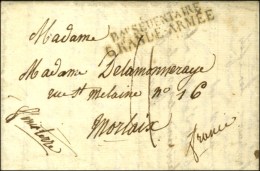 Madame
GRANDE-ARMÉE
Madame Delamonneraye
rue St melaine nº 16
Morlaix
france